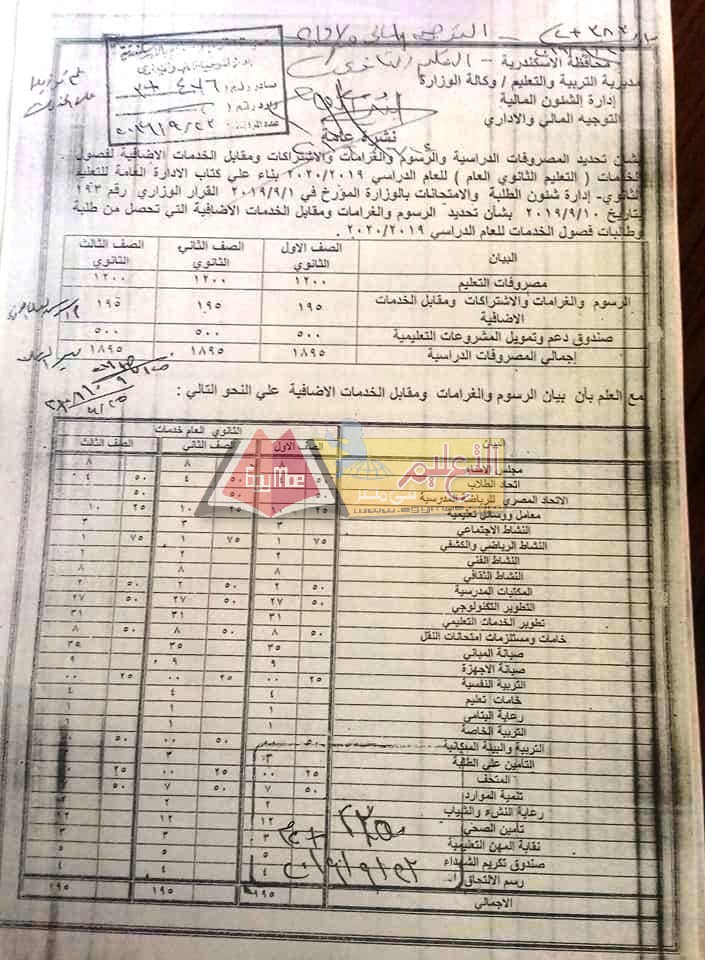 محافظة الاسكندرية
مديرية التربية والتعليم / وكالة الوزارة
إدارة الشئون المالية
التوجيه المالي والاداري
نشرة عامة
بشأن تحديد المصروفات الدراسية والرسوم والغرامات والاشتراكات ومقابل الخدمات الاضافية لفصول
الخدمات ( التعليم الثانوي العام ) للعام الدراسي ٢٠٢٠/٢٠١٩ بناء علي كتاب الادارة العامة للتعليم
الثانوي- إدارة شئون الطلبة والامتحانات بالوزارة المؤرخ في ٢٠١٩/٩/١ القرار الوزاري رقم ١٩٣
بتاريخ ٢٠١٩/٩/١٠ بشأن تحديد الرسوم والغرامات ومقابل الخدمات الاضافية التي تحصل من طلبة
وطالبات فصول الخدمات للعام الدراسي ٢٠٢٠/٢٠١٩ .
البيان الصف الاول الثانوي الصف الثاني الثانوي الصف الثالث الثانوي
مصروفات التعليم ١٢٠٠ ١٢٠٠ ١٢٠٠
الرسوم والغرامات والاشتراكات ومقابل الخدمات الاضافية ١٩٥ ١٩٥ ١٩٥
صندوق دعم وتمويل المشروعات التعليمية ٥٠٠ ٥٠٠ ٥٠٠
إجمالي المصروفات الدراسية ١٨٩٥ ١٨٩٥ ١٨٩٥
مع العلم بأن بيان الرسوم والغرامات ومقابل الخدمات الاضافية علي النحو التالي :
الثانوي العام خدمات
البيان الصف الاول الصف الثاني الصف الثالث
مجلس الامناء ٨ ٨
اتحاد الطلاب ٥٠ ٤ ٥٠ ٤
الاتحاد المصري للرياضة المدرسية ٥٠ ٥٠
معامل ووسائل تعليمية ٢٥ ١٠ ٢٥ ١٠ ٢٥ ١٠
النشاط الاجتماعي ٣ ٣ ٣
النشاط الرياضي والكشفي ٧٥ ١ ٧٥ ١ ٧٥ ١
النشاط الفني ٨ ٨ ٨
النشاط الثقافي ٨ ٨ ٨
المكتبات المدرسية ٥٠ ٢ ٥٠ ٢ ٥٠ ٢
التطوير التكنولوجي ٥٠ ٢٧ ٥٠ ٢٧ ٥٠ ٢٧
تطوير الخدمات التعليمي ٣١ ٣١ ٣١
خامات ومستلزمات امتحانات النقل ٥٠ ٨ ٥٠ ٨ ٥٠ ٨
صيانة المباني ٣٥ ٣٥ ٣٥
صيانة الاجهزة ٩ ٩ ٩
التربية النفسية ٢٥ ٠٠ ٢٥ ٠٠ ٢٥ ٠٠
خامات تعليم ٤ ٤ ٤
رعاية اليتامي ١ ١ ١
التربية الخاصة ١ ١ ١
التربية والبيئة السكانية ٥٠ ٥٠ ٠٠ ٥٠ ٠٠
التأمين علي الطلبة ٣ ٣
المتحف ٢٥ ٠٠ ٢٥ ٠٠ ٢٥
تنمية الموارد ٥٠ ٧ ٥٠ ٧ ٥٠
رعاية النشء والشباب ٢ ٢
تأمين الصحي ١٢ ١٢ ١٢
نقابة المهن التعليمية ٣ ٣ ٣
صندوق تكريم الشهداء ٥ ٥ ٥
رسم الالتحاق ٤ ٤ ٤
الاجمالي ١٩٥ ١٩٥ ١٩٥
EgyMoe
التعليم
في مصر